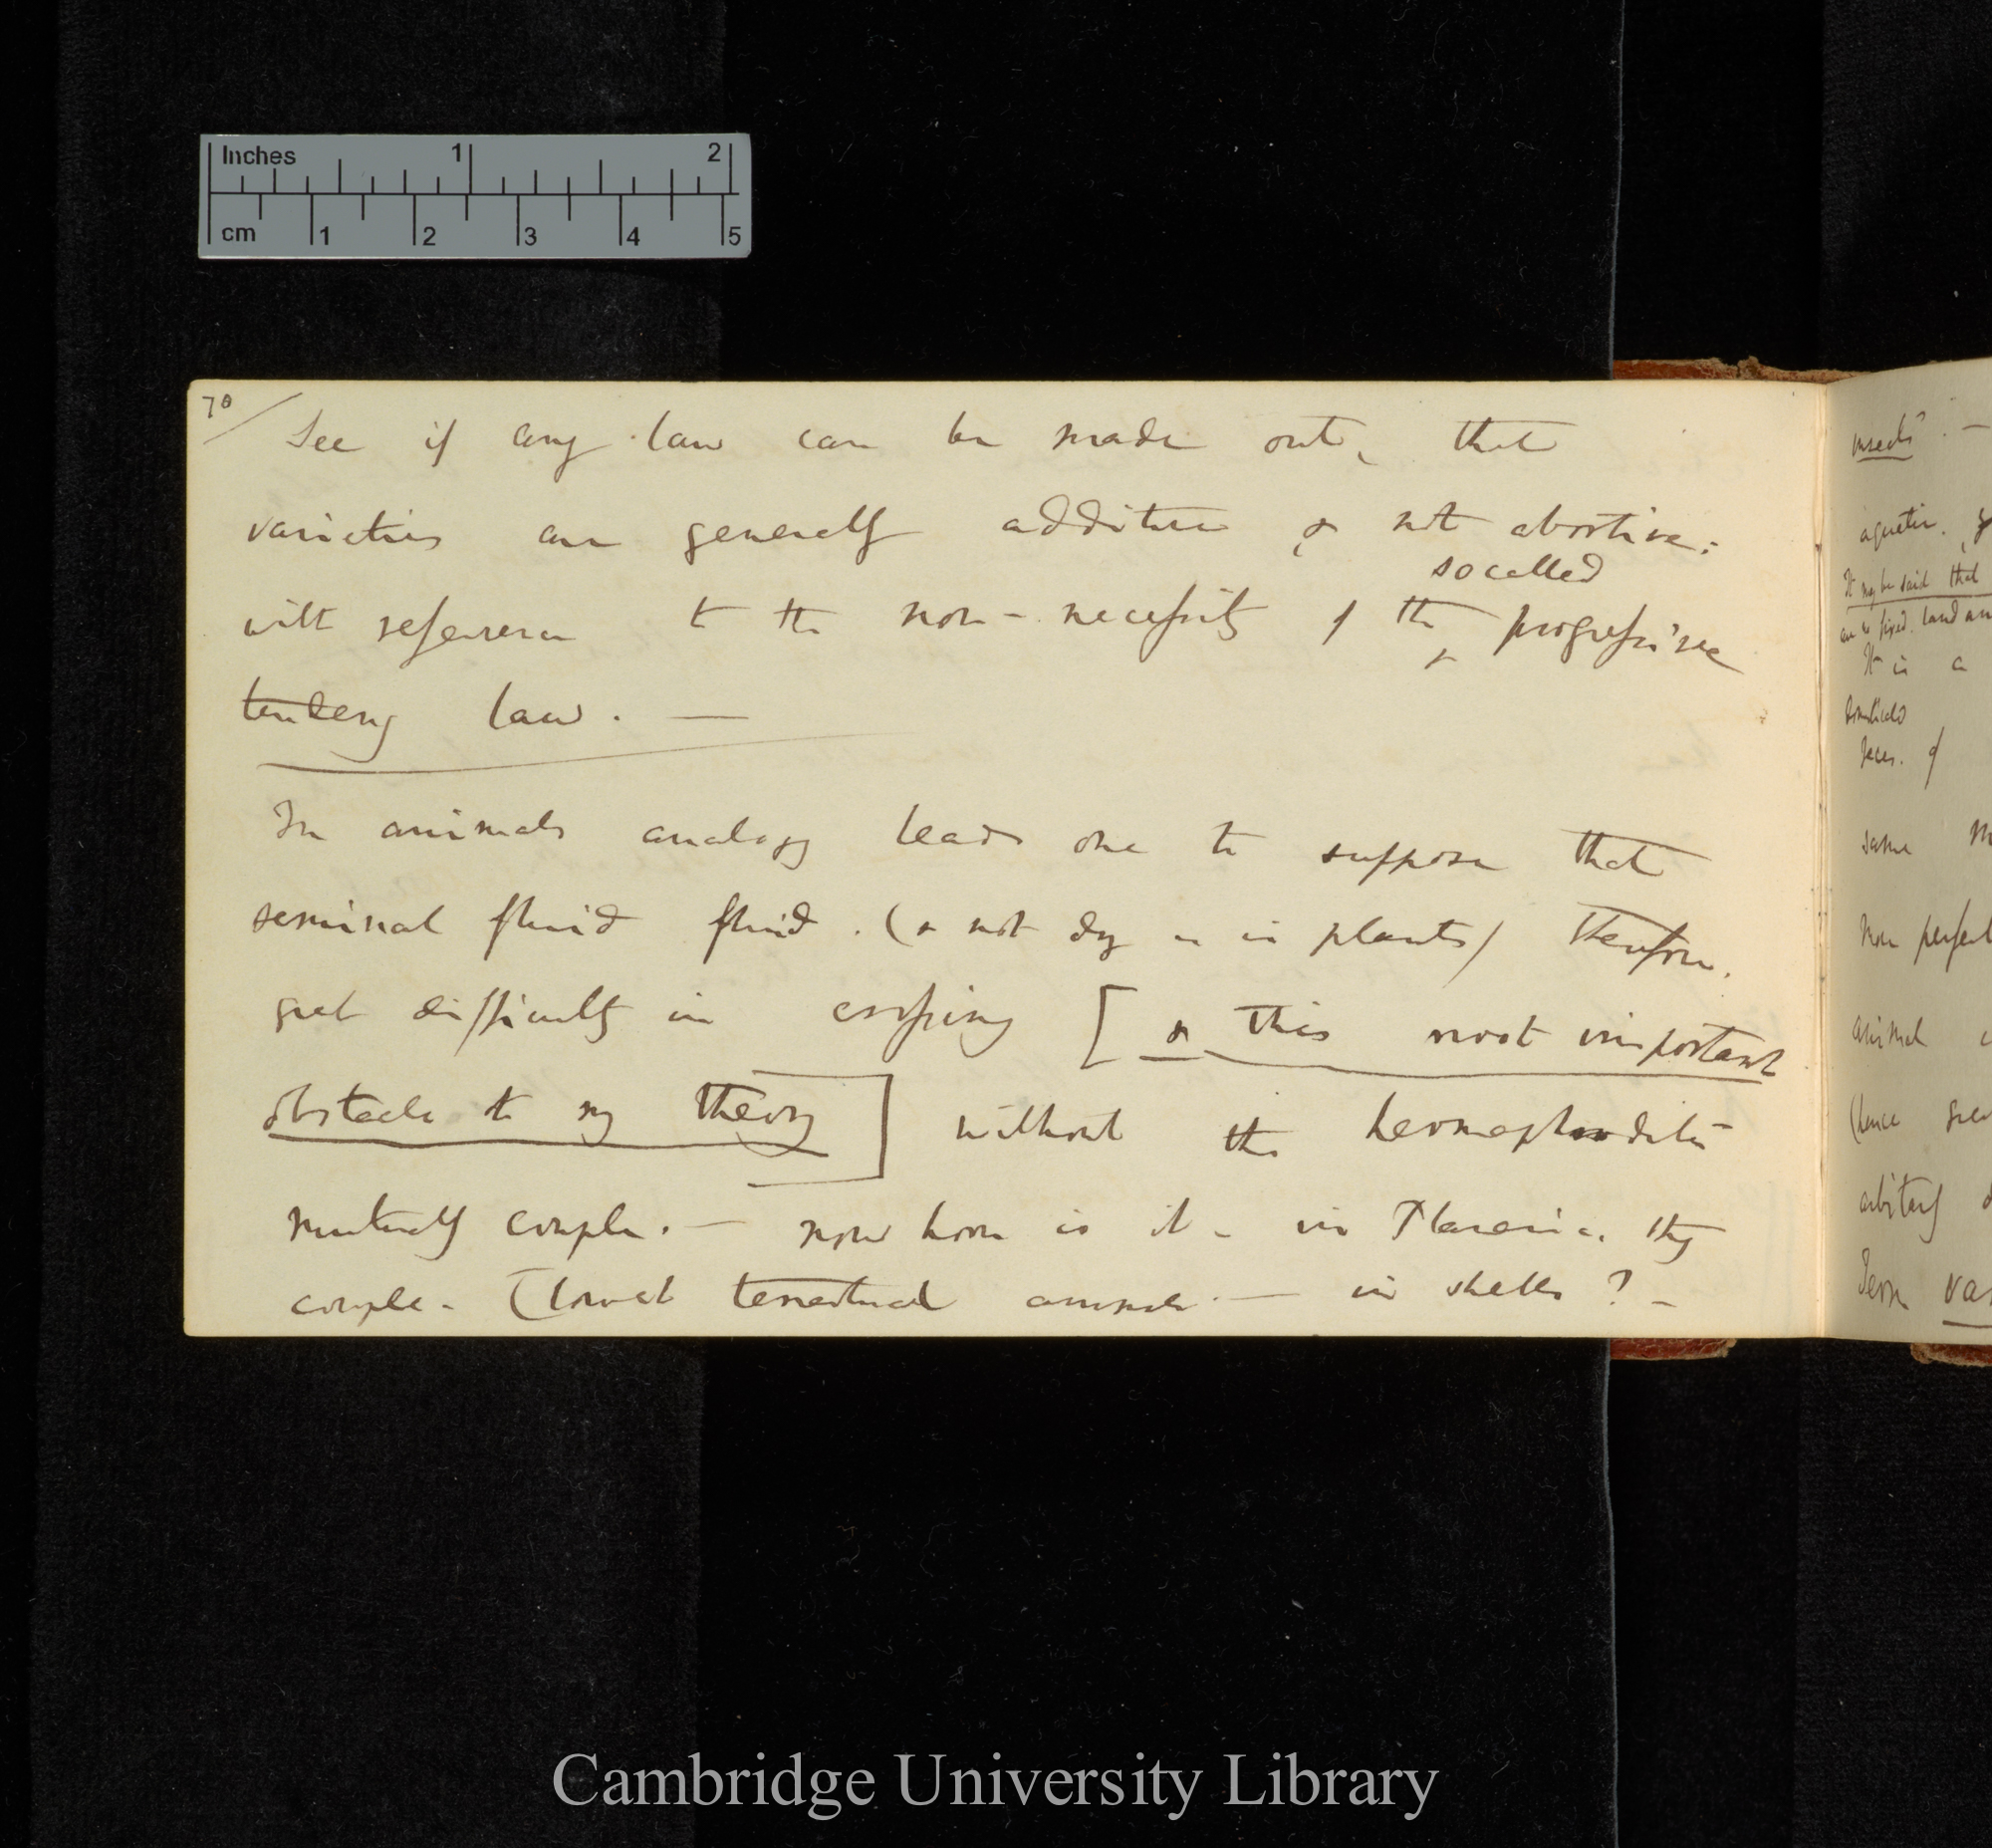 Inches 1 2
cm 1 2 3 4 5
70
See if any law can be made out, that
varieties are generally additive & not abortive:
so called
with reference to the non-necessity of the progressive
tendency law. —
In animals analogy leads one to suppose that
seminal fluid fluid. (& not dry as in plants) therefore.
great difficulty in crossing [& this most important
obstacle to my theory] without the hermaphrodites
mutually couple. — now how is it - in Planaria. they
couple - (lowest terrestrial animal. — in shells? –
insects. —
aquatic.
It may be said that
fixed. land an
It is a
of
same
non perfect
animal
(hence
arbitary
var
Cambridge University Library